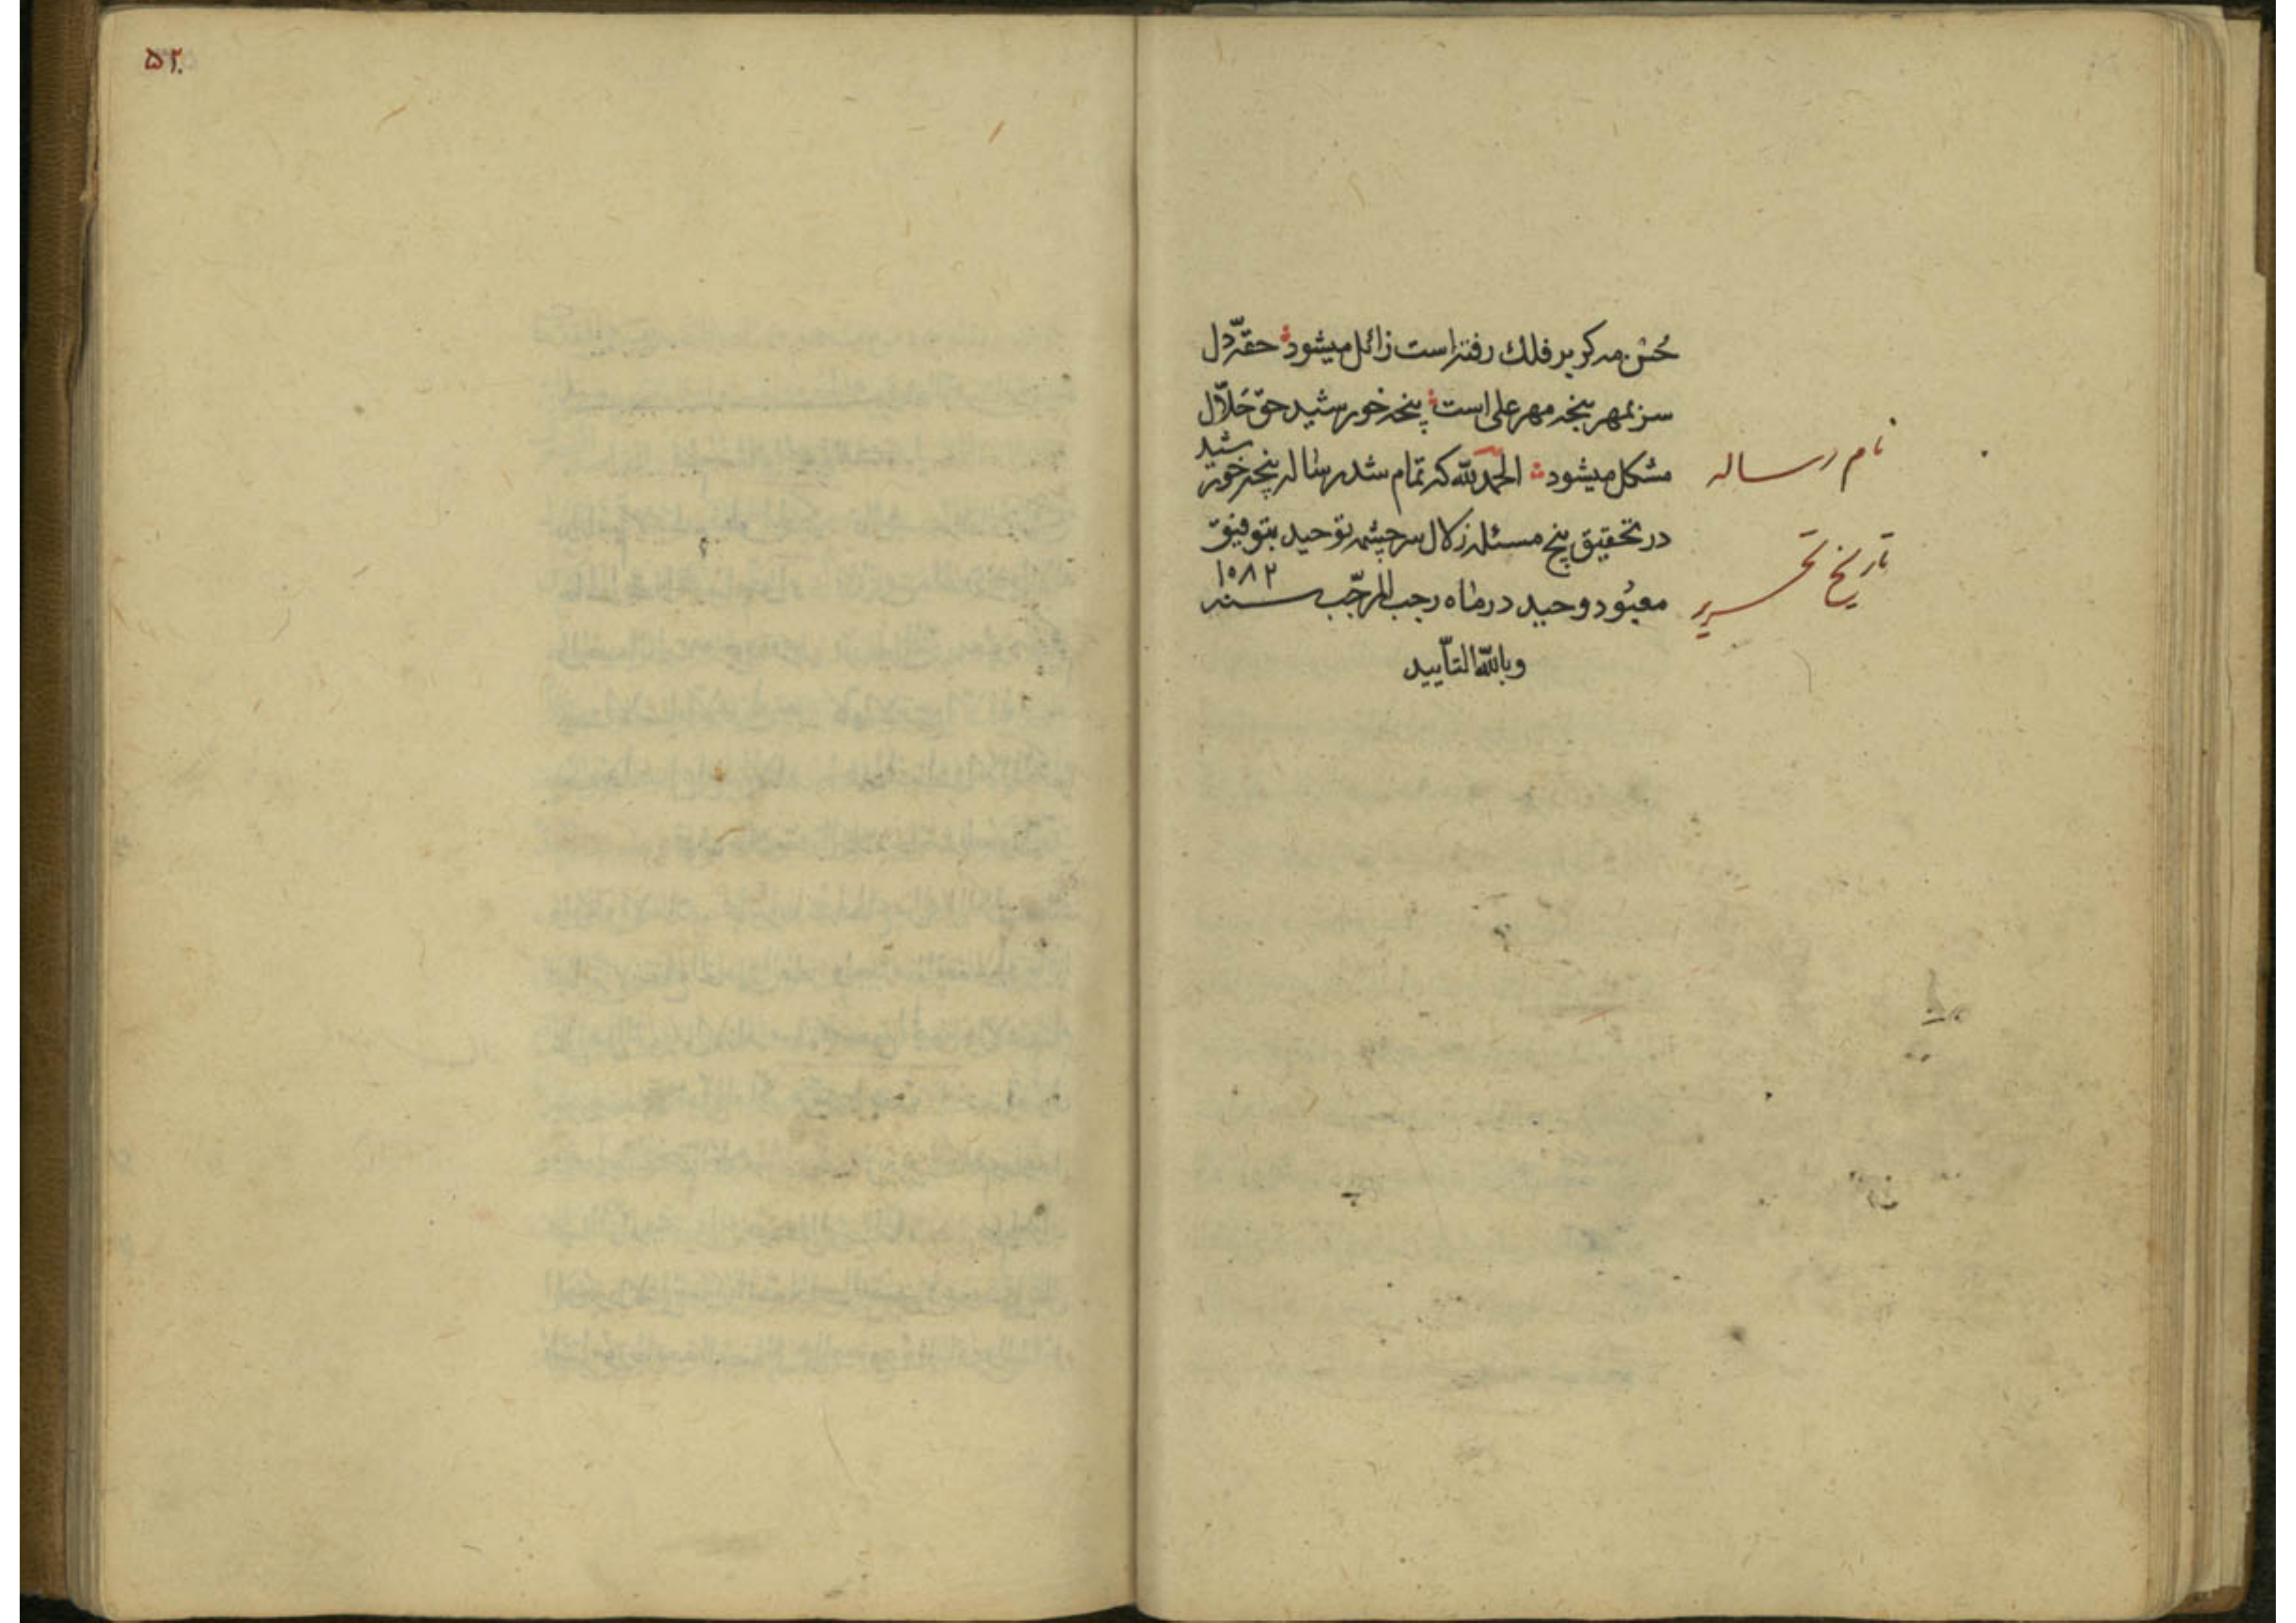 حُسن مه کو بر فلك رفته است زائل میشود حقّهٔ دل
سر بمهر پنجه مهر علی است پنجه خورشید حقّ حلّال
مشکل میشود الحمد لله که تمام شد رساله پنجه خورشید
در تحقیق پنج مسئله زلال سرچشمه توحید بتوفیق
معبود وحید در ماه رجب المرجّب سنه ۱۰۸۲
وبالله التأیید
نام رساله
تاریخ تحریر
۵۲